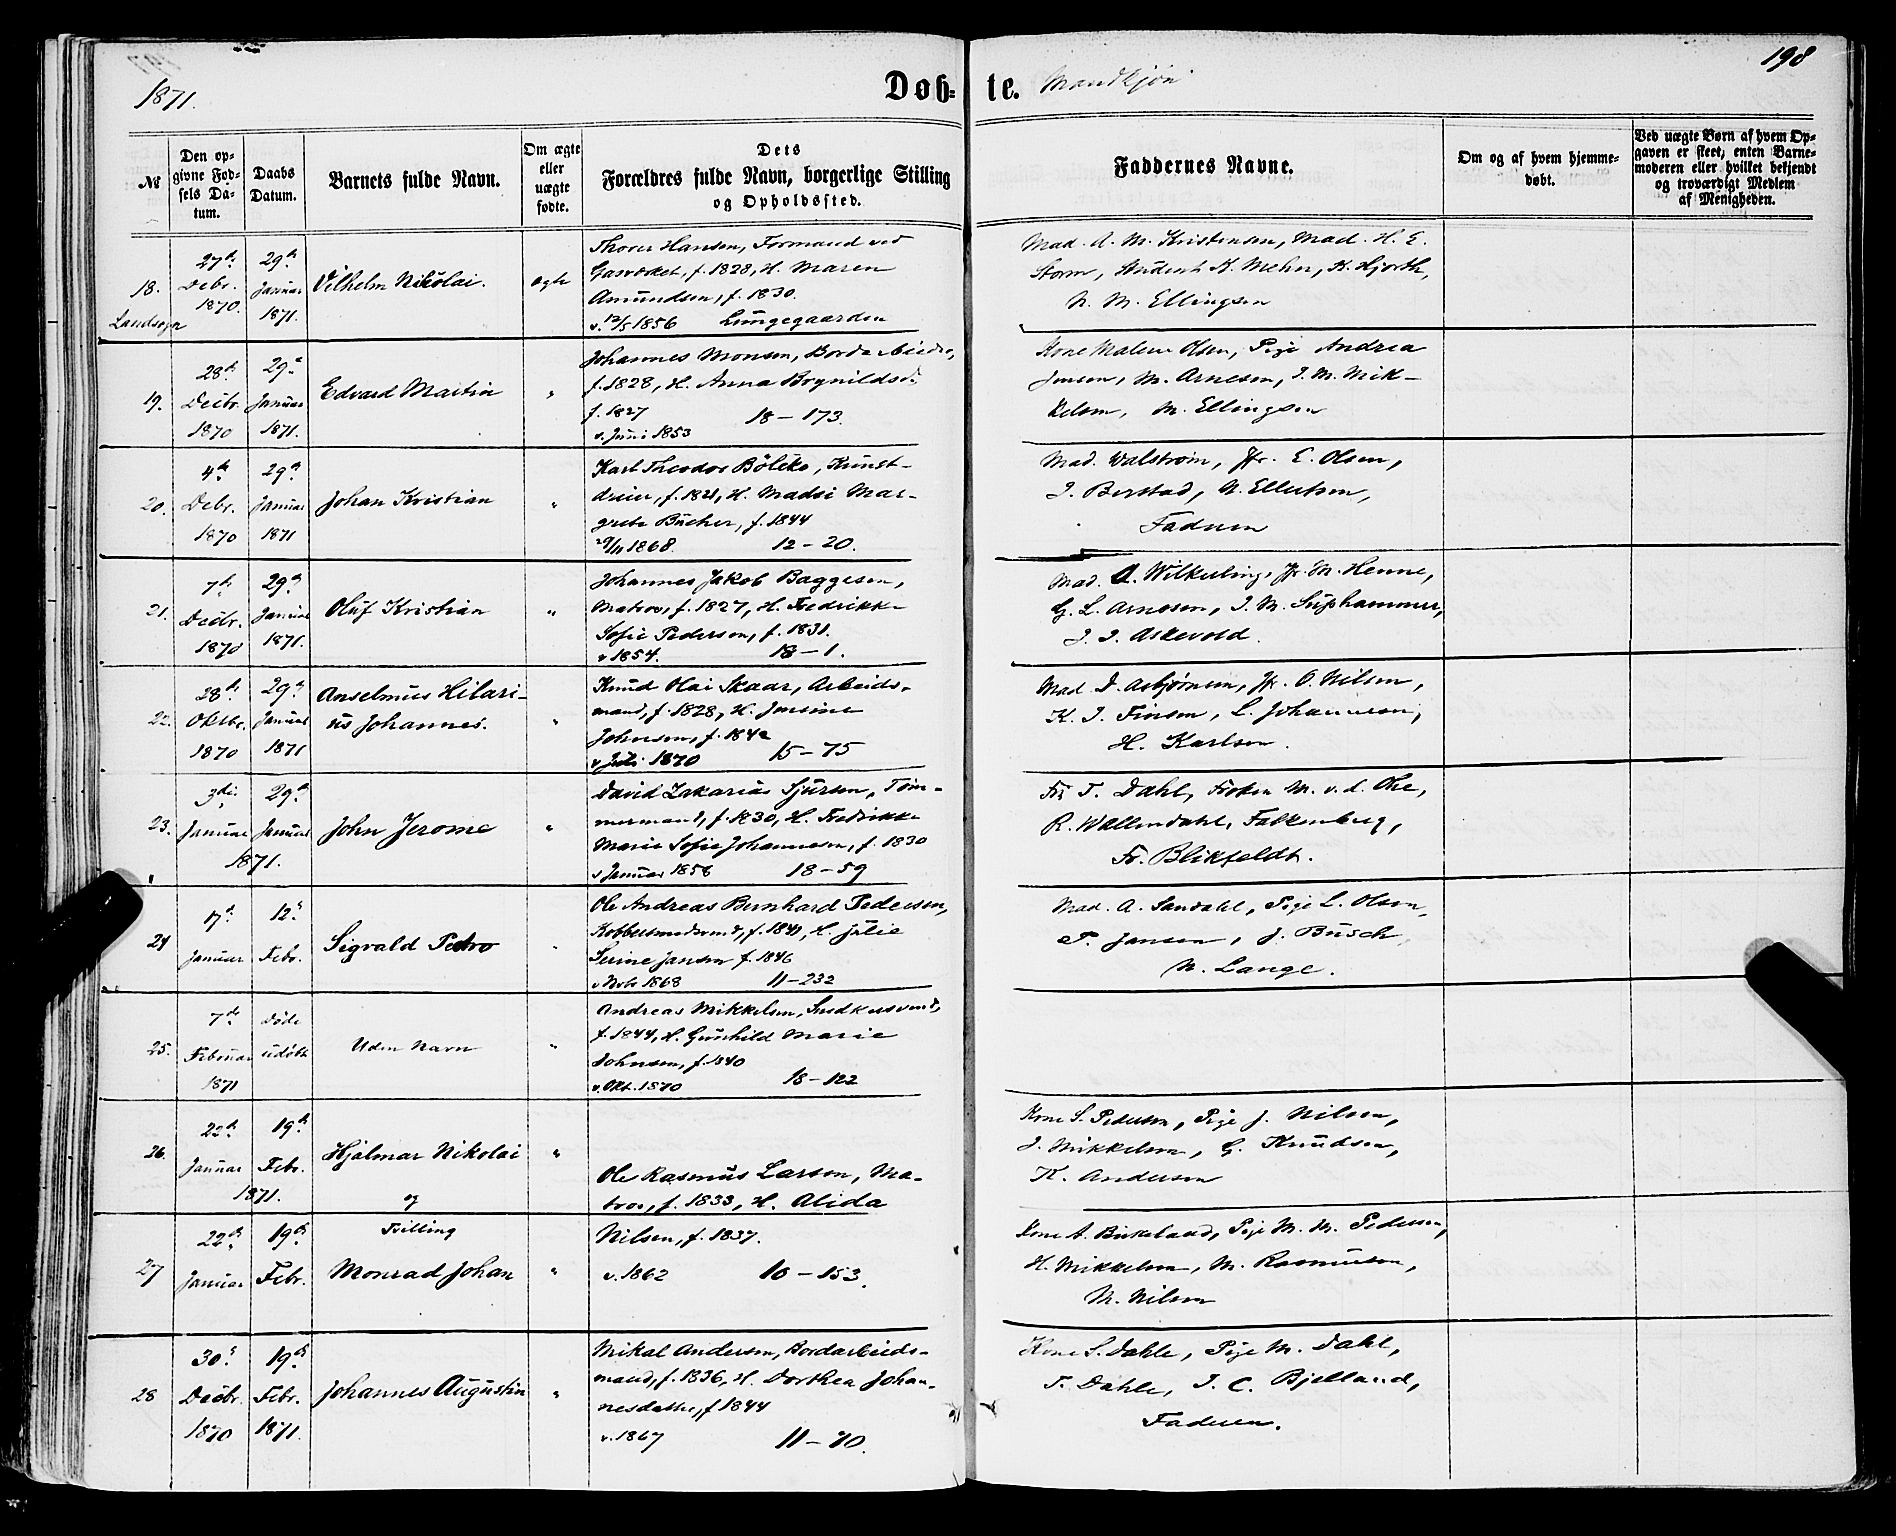 198
1871.
Døb= te. Mandkjøn
№
Den op=
givne Fød=
sels Da=
tum.
Daabs
Datum.
Barnets fulde Navn.
Om ægte
eller
uægte
fødte.
Dets
Forældres fulde Navn, borgerlige Stilling
og Opholdssted.
Faddernes Navne.
Om og af hvem hjemme=
døbt.
Ved uægte Børn af hvem Op=
gaven er skeet, enten Barne=
moderen eller hvilket bekjendt
og troværdigt Medlem
af Menigheden.
18.
Landsogn
27de
Debr.
1870.
29de
Januar
1871.
Vilhelm Nikolai.
ægte
Thorer Hansen, Formand ved
Gasværket, f. 1828, H. Maren
Amundsen, f. 1830.
v. 12/5 1856 Lungegaarden
Mad. A. M. Kristensen, Mad. H. E.
Storm, Student K. Mehn, K. Hjorth,
N. M. Ellingsen
19.
28de
Decbr.
1870
29de
Januar
1871.
Edvard Martin
"
Johannes Monsen, Bordarbeider,
f. 1828, H. Anna Brynildsd.
f. 1827
v. Juni 1853 18 – 173.
Kone Malene Olsen, Pige Andrea
Jensen, M. Arnesen, J. M. Mik-
kelsen, M. Ellingsen
20.
4de
Debr.
1870
29de
Januar
1871
Johan Kristian
"
Karl Theodor Bölcke, Kunst-
dreier, f. 1821, H. Madsi Mar-
grete Bücher, f. 1844
29/11 1868. 12 – 20.
Mad. Walstrøm, Jfr. E. Olsen,
J. Berstad, N. Ellertsen,
Faderen
21.
7de
Decbr.
1870
29de
Januar
1871.
Oluf Kristian
"
Johannes Jakob Baggesen,
Matros, f. 1827, H. Fredrikke
Sofie Pedersen, f. 1831.
v 1854. 18 – 1.
Mad. A. Wilkerling, Jfr. M. Henne,
G. L. Arnesen, J. M. Suphammer,
J. J. Askevold.
22.
28de
Oktbr.
1870
29de
Januar
1871
Anselmus Hilari-
us Johannes.
"
Knud Olai Skaar, Arbeids-
mand, f. 1828, H. Jensine
Johnsen, f. 1842
v Juli 1870 15 – 75
Mad D. Asbjørnsen, Jfr. O. Nilsen,
K. J. Finsen, L. Johannesen,
H. Karlsen.
23.
3die
Januar
1871.
29de
Januar
John Jerome
"
David Zakarias Sjursen, Tøm-
mermand, f. 1830, H. Fredrikke
Marie Sofie Johannesen, f. 1830
v Januar 1858 18 – 59
Fr. T. Dahl, Frøken M. v. d. Ohe,
R. Wallendahl, Falkenberg,
Fr. Blikfeldt.
24
17de
Januar
12te
Febr.
Sigvald Pedro
"
Ole Andreas Bernhard Pedersen,
Kobbersmedsvend, f. 1841, H. Julie
Serine Jansen f. 1846
v Novbr 1868 11 – 232
Mad. A. Sandahl, Pige L. Olsen,
P. Jansen, J. Busch
N. Lange.
25.
7de
Februar
1871
Døde
udøbt
Uden Navn
"
Andreas Mikkelsen, Snedkersvend,
f. 1844, H. Gunhild Marie
Johnsen, f. 1840
v. Okt. 1870 18 – 122
26.
22de
Januar
1871.
19de
Febr.
Hjalmar Nikolai
og
"
Ole Rasmus Larsen, Ma-
tros, f. 1833, H. Alida
Kone S. Pedersen, Pige J. Nilsen,
J. Mikkelsen, G. Knudsen,
K. Andersen
27
22de
Januar
19de
Febr.
Tvilling
Monrad Johan
"
Nilsen, f. 1837.
v. 1862 10 – 153.
Kone A. Birkeland, Pige M. M. Pedersen,
H. Mikkelsen, M. Rasmussen,
M. Nilsen
28
30te
Decbr.
1870
19de
Febr.
1871.
Johannes Augustin
"
Mikal Andersen, Bordarbeids-
mand, f. 1836, H. Dorthea Johan-
nesdatter, f 1844
v. 1867 11 – 70.
Kone S. Dahle, Pige M. Dahl,
T. Dahle, J. C. Bjelland,
Faderen.